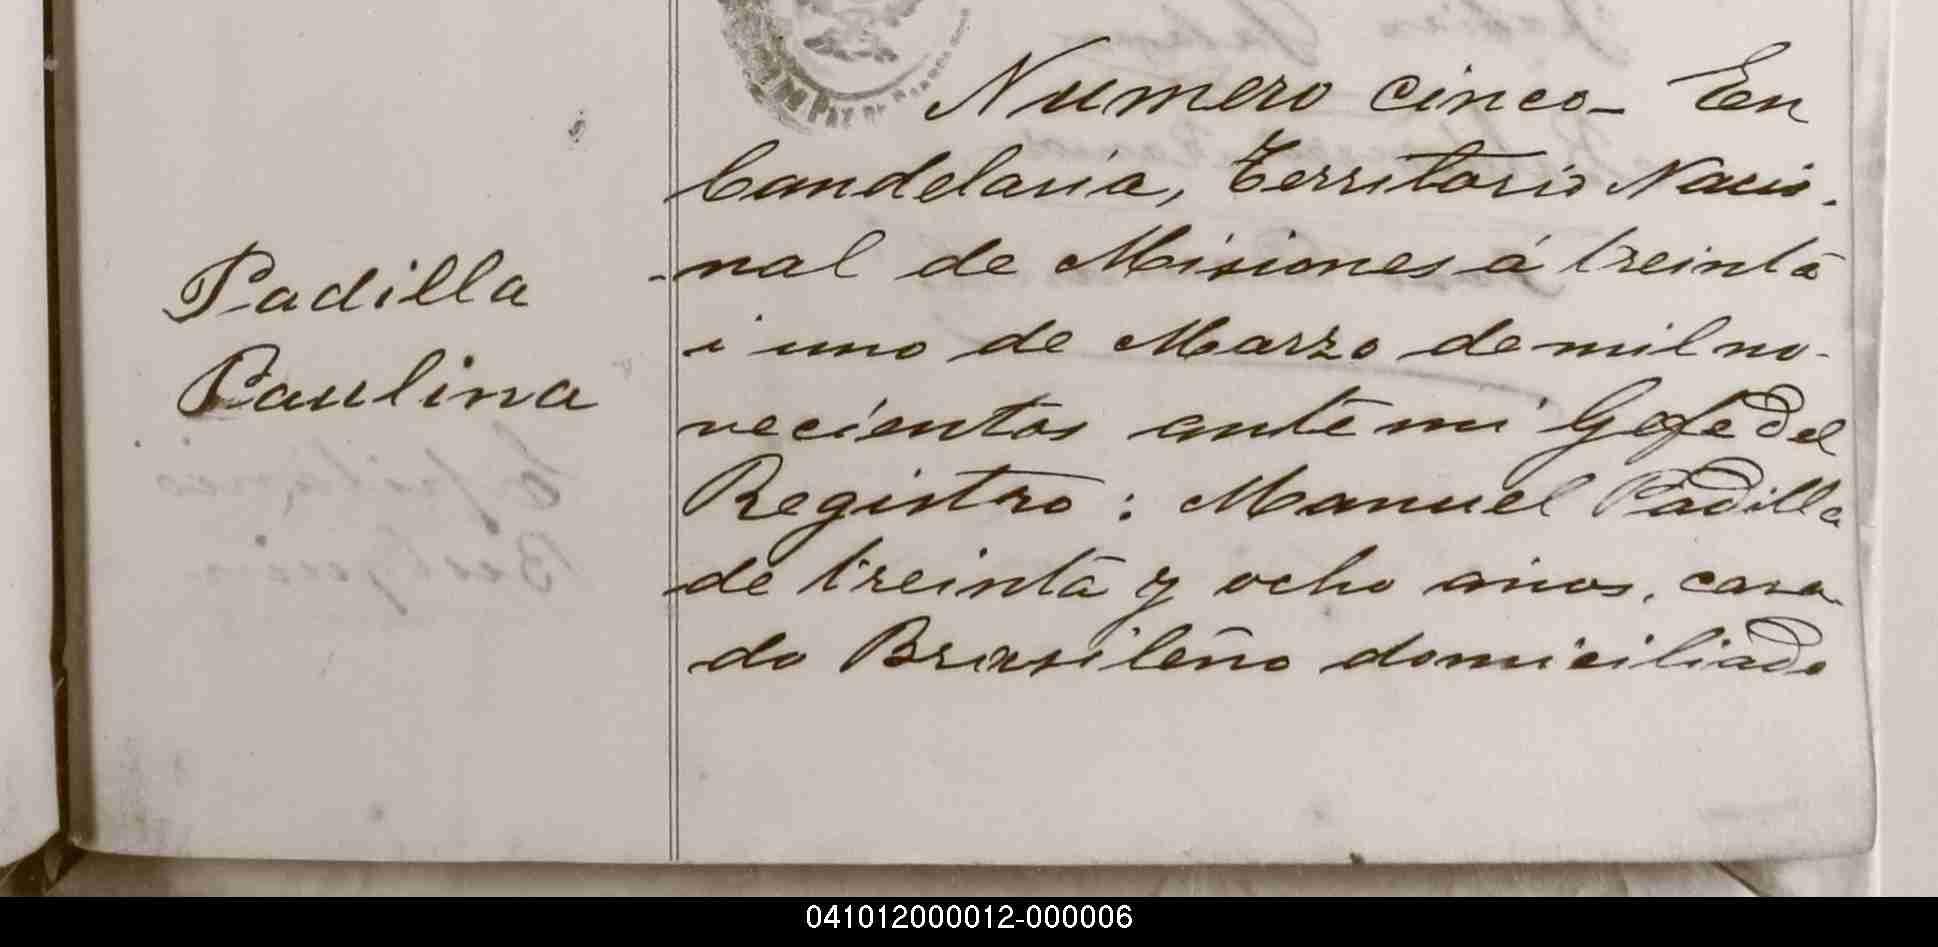 Numero cinco– En
Candelaria, Territorio Nacio-
-nal de Misiones á treinta
i uno de Marzo de mil no-
vecientos ante mi Gefe del
Registro: Manuel Padilla
de treinta y ocho anos, casa-
do Brasileño domiciliado
Padilla
Paulina
041012000012-000006